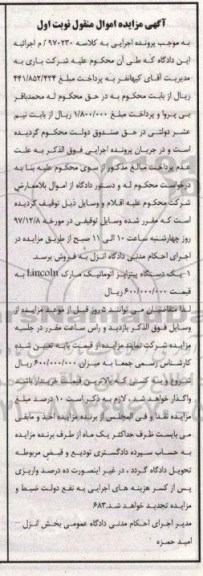 آگهی مزایده اموال منقول نوبت اول
به موجب پرونده اجرایی به کلاسه ۹۷۰۲۳۰/ م اجرائیه
این دادگاه که طی آن محکوم علیه شرکت یاری به
مدیریت آقای کیهانفر به پرداخت مبلغ ۴۴۱/۸۵۲/۳۲۴
ریال از بابت محکوم به در حق محکوم له محمدباقر
بی پروا و پرداخت مبلغ ۱/۸۰۰/۰۰۰ ریال از بابت نیم
عشر دولتی در حق صندوق دولت محکوم گردیده
است و در جریان پرونده اجرایی فوق الذکر به علت
عدم پرداخت مبالغ مذکور از سوی محکوم علیه بنا به
درخواست محکوم له و دستور دادگاه از اموال بلامعارض
شرکت محکوم علیه اقلام و وسایل ذیل توقیف گردیده
است که مقرر شده وسایل توقیفی در مورخه ۹۷/۱۲/۸
روز چهارشنبه ساعت ۱۰ الی ۱۱ صبح از طریق مزایده در
اجرای احکام مدنی دادگاه انزل به فروش برسد.
۱-یک دستگاه پیتزاپز اتوماتیک مارک Lincoln به
قیمت ۶۰۰/۰۰۰/۰۰۰ ریال
لذا متقاضیان می توانند ۵ روز قبل از موعد مزایده از
وسایل فوق الذکر بازدید و راس ساعت مقرر در جلسه
مزایده شرکت نمایند مزایده از قیمت پایه تعیین شده
کارشناس رسمی جمعا به میزان ۶۰۰/۰۰۰/۰۰۰ ریال
شروع و به کسی که بالاترین قیمت را
واگذار خواهد شد. لازم به ذکر است ۱۰ درصد مبلغ
مزایده نقدا و فی المجلس از برنده مزایده اخذ و مابقی
می بایست ظرف حداکثر یک ماه از طرف برنده مزایده
به حساب سپرده دادگستری تودیع و قبض مربوطه
تحویل دادگاه گردد ، در غیر اینصورت ده درصد واریزی
پس از کسر هزینه های اجرایی به نفع دولت ضبط و
مزایده تجدید خواهد شد.۶۸۳
مدیر اجرای احکام مدنی دادگاه عمومی بخش انزل -
امید حمزه